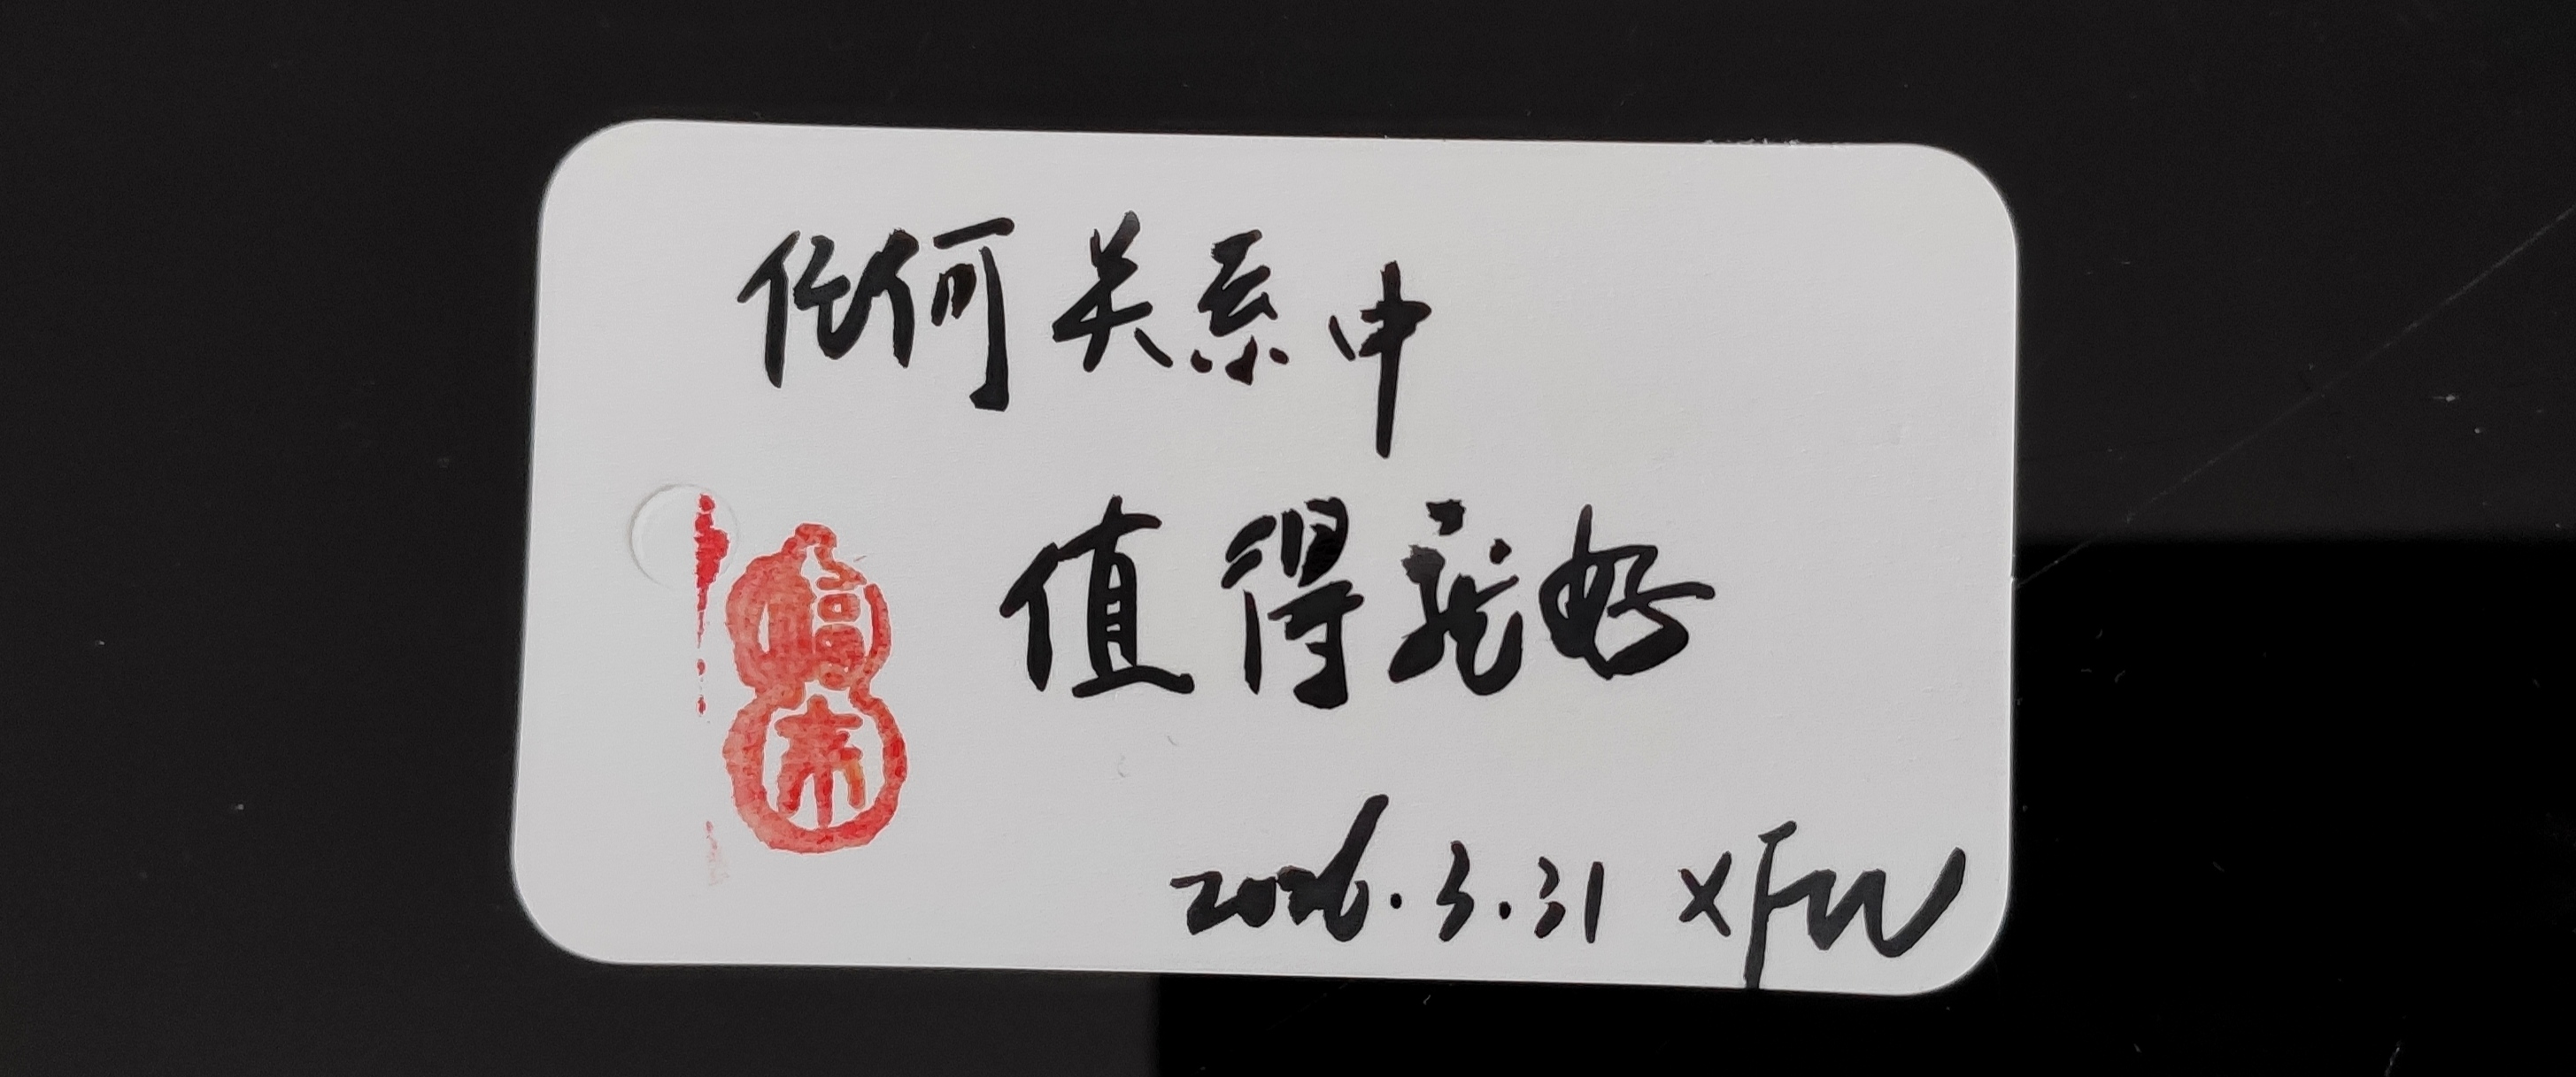 任何关系中
值得就好
福
2026.3.31 XFW